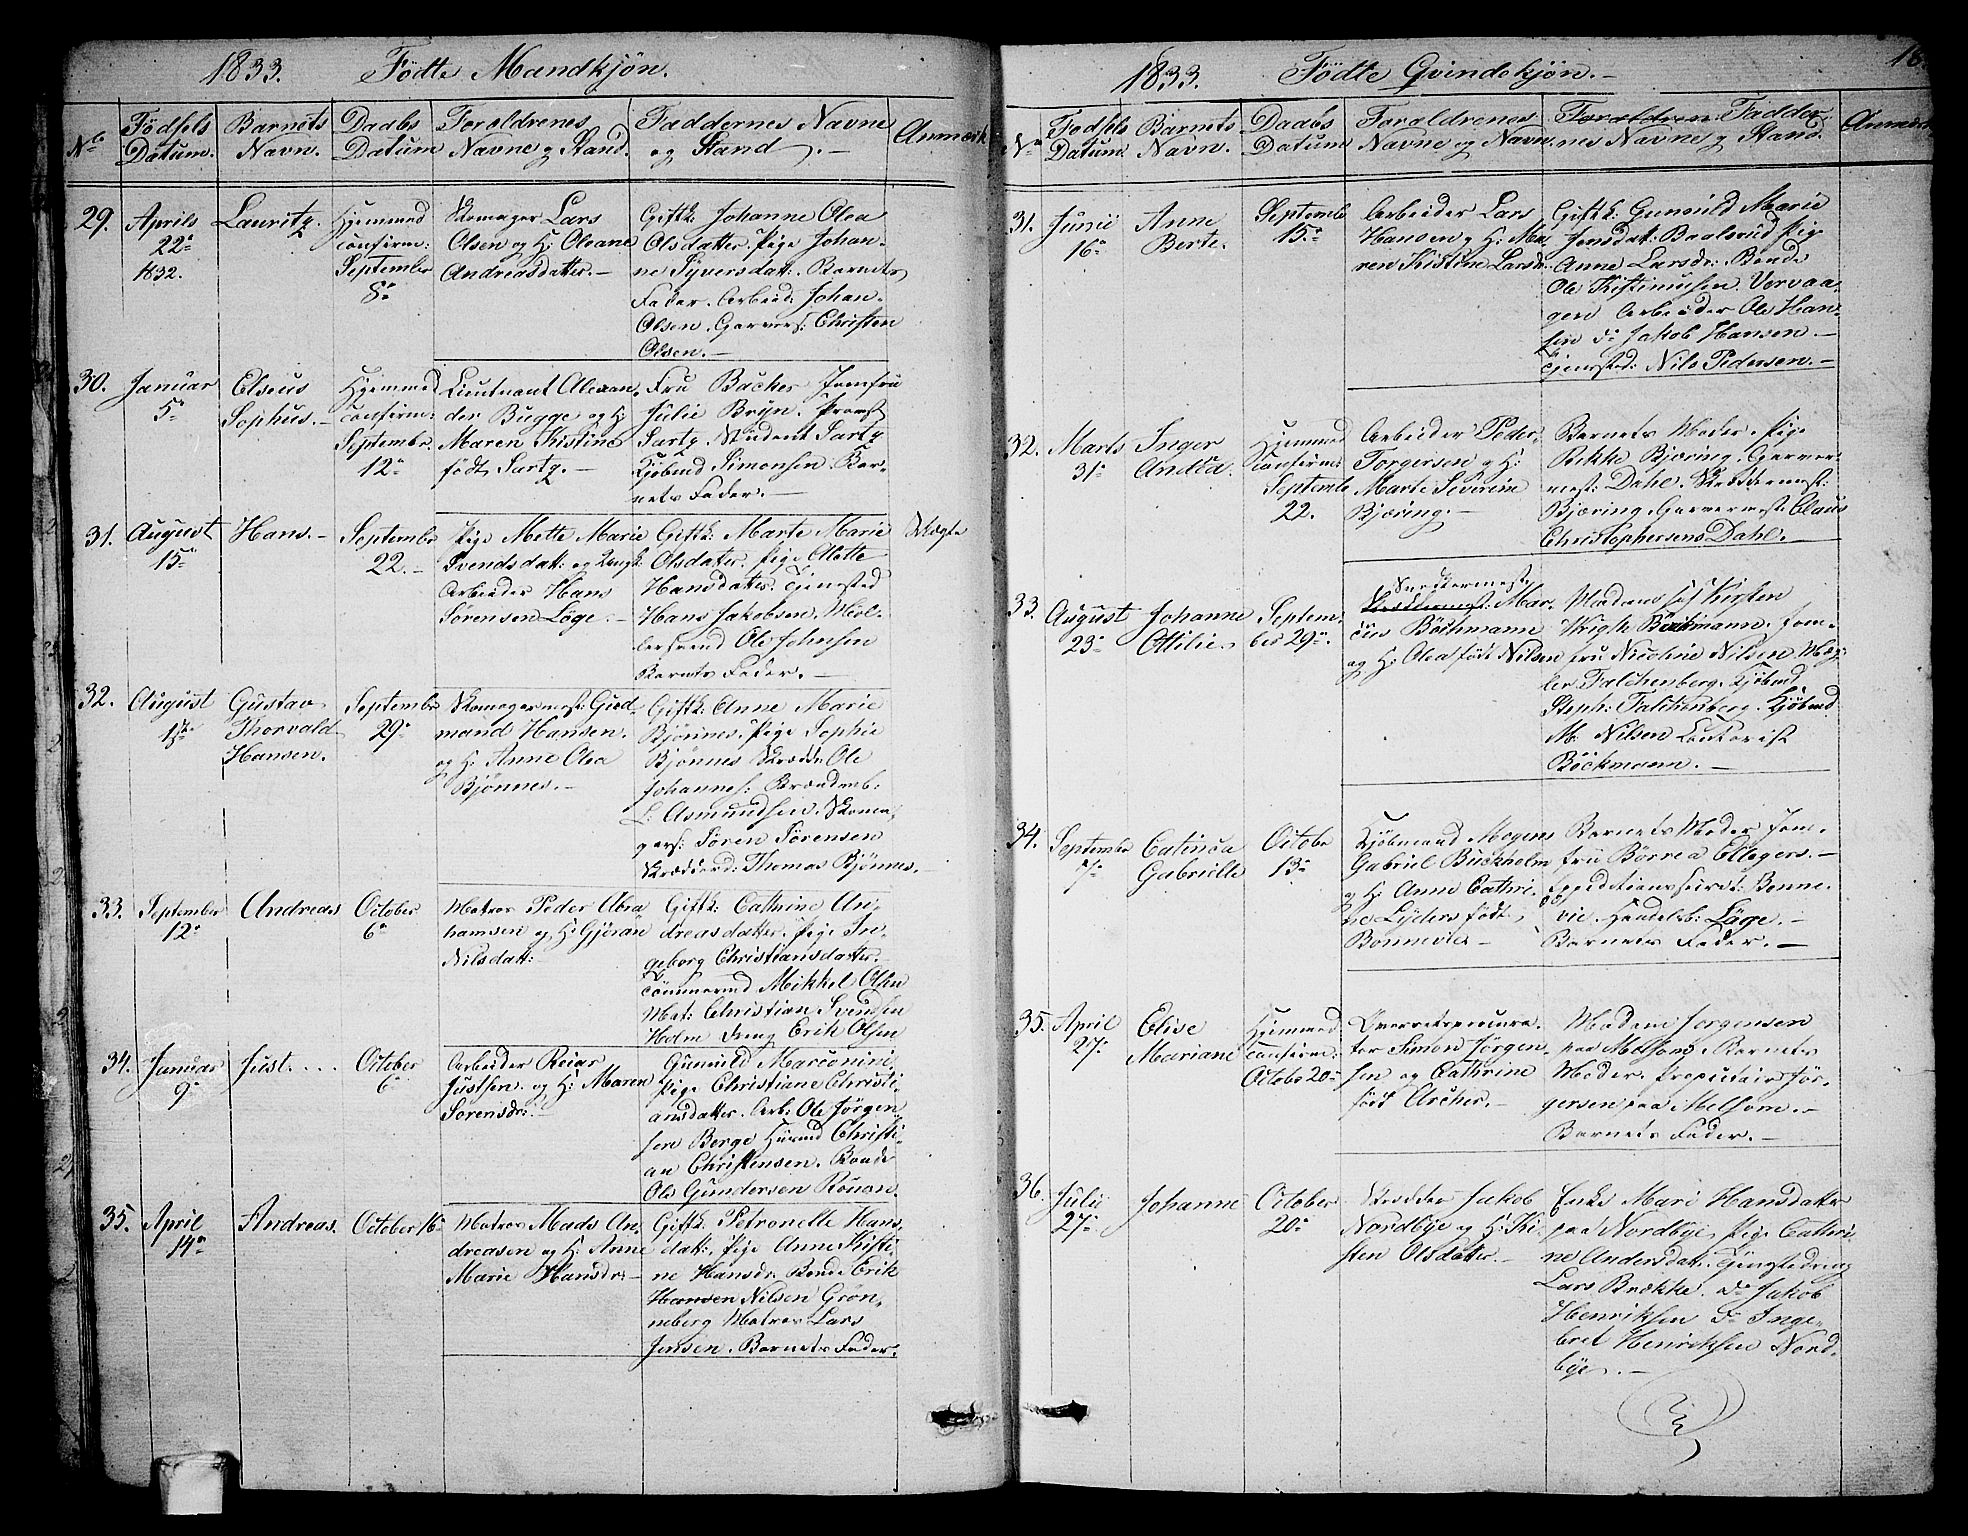 1833. Födte Mandkjøn.
No
Födsels Datum.
Barnets Navn.
Daabs Datum
Foraldrenes Navne og Stand.
Faddernes Navne og Stand. -
Anmærk
29.
Aprils
22de
1832.
Lauritz
Hjemmed
confirm:
September
8de
Skomager Lars
Olsen og H: Oleane
Andreasdatter. -
Giftk: Johanne Olea
Olsdatter. Pige Johan-
ne Syversdatt: Barnets
Fader. Arbeid: Johan-
Olsen. Garvers: Christen
Olsen. -
30.
Januar
5te
Elseus
Sophus. -
Hjemmed
confirm:
Septembr.
12te
Lieutnant Alexan-
der Bugge og H:
Maren Kistine
født Sartz. -
Fru Backer Jomfru
Julie Bryn. Provst
Sartz. Student Sartz
Kjöbmd Simonsen Bar-
nets Fader. -
31.
August
15de
Hans. -
Septembr
22. -
Pige Mette Marie
Svendsdatt: og Ungk:
Arbeider Hans
Sörensen Löge. -
Giftk: Marte Marie
Olsdatter. Pige Olette
Hansdatter. Tjenested
Hans Jakobsen. Möl-
lersvend Ole Johnsen
Barnets Fader. -
Uægte
32.
August
1ste
Gustav
Thorvald
Hansen.
Septembr
29de
Skomagermest: Gud-
mand Hansen.
og H: Anne Olea
Bjönnes. -
Giftk: Anne Marie
Bjönnes. Pige Sophie
Bjönnes Skrædd: Ole
Johannes: Brændevb:
L: Asmundsen. Skoma-
gers: Sören Sörensen
Skrædderd: Thomas Bjönnes. -
33.
September
12te
Andreas
October
6te
Matros Peder Abra
hamsen og H: Gjeran
Nilsdatt:
Giftk: Cathrine An-
dreasdatter. Pige In-
geborg Christiansdatter. -
Tömmermd Mikkel Olsen
Mat: Christian Svendsen
Holm Dreng Erik Olsen
34.
Januar
9de
Just. ...
October
6te
Arbeider Reiar
Justsen og H: Maren
Sörensdr:
Gunvild Marconini,
Pige Christiane Christi-
ansdatter. Arb: Ole Jörgen-
sen Berge Huusmd Christi-
an Christensen. Bonde
Ole Gundersen Rönan.
35.
April
14de
Andreas.
October 16de
Matros Mads An-
dreasen og H: Anne
Marie Hansdr: -
Giftk: Petronelle Hans-
datt: Pige Anne Kisti-
ne Hansdr: Bonde Erik
Hansen Nilsen Gron-
neberg Matros Lars
Jensen. Barnets Fader.
1833. Födte Qvindekjön. -
No
Födsels Datum.
Barnets Navn.
Daabs Datum
Foraldrenes Navne og Navn.
Foraldren Faddernes Navne og Stand.
Anmærk
31.
Junii
16de
Anne
Berte.
Septembr
15de
Arbeider Lars
Hansen og H: Ma
ren Kistine Larsdr.
Giftk: Gunvild Marie
Jensdat: Baalsrud Pige
Anne Larsdr: Bonde
Ole Kistensen Vervaa-
gen Arbeider Ole Han-
sen do Jakob Hansen. -
Tjenested: Nils Pedersen. -
32.
Marts
31te
Inger
Andrea.
Hjemmed
Confirm:
Septembr
22.
Arbeider Peder
Torgersen og H:
Marte Severine
Bjæring. -
Barnets Moder. Pige
Rikke Bjæring. Garver-
mest: Dahl. Skreddermest:
Bjæring. Garvermest: Claus
Christophersens Dahl. -
33.
August
23de
Johanne
Ottilie.
Septem-
ber 29de
Snedkermest:
Mar-
cius Böckmann
og H: Olea född Nilsen
Madame Kirsten
Wrigh Böckmann. Jom-
fru Nicoline Nilsen Mæg-
ler Falchenberg. Kjöbmd
Steph: Falchenberg. Kjöbmd
M. Nilsen Contorist
Böckmann. -
34.
Septembr
7de
Catinca
Gabrielle
Octobr
13de
Kjöbmand Mogens
Gabriel Buckholm
og H: Anne Cathri-
ne Lyders födt
Bonnevie -
Barnets Moder Jom-
fru Börrea Ellegers. -
Expeditionssecret: Bonne-
vie. Handelsb: Löge. -
Barnets Fader. -
35.
April
27de
Elise
Mariane
Hjemmed
confirm:
Octobr 20de
Overretsprocura-
tor Simon Jörgen-
sen og Cathrine
född Archer. -
Madame Jorgensen
paa Melsom. Barnets
Moder. Proprietair Jör-
gensen paa Melsom. -
Barnets Fader. -
36.
Julii
27de
Johanne
October
20de
Skredder Jakob
Nordbye og H: Ki-
sten Olsdatter. -
Enke Mari Hansdatter
paa Nordbye, Pige Cathri-
ne Andersdatt. Gjenstedreng
Lars Brække. do Jakob
Henriksen do Inge-
bret Henriksen Nord-
bye. -